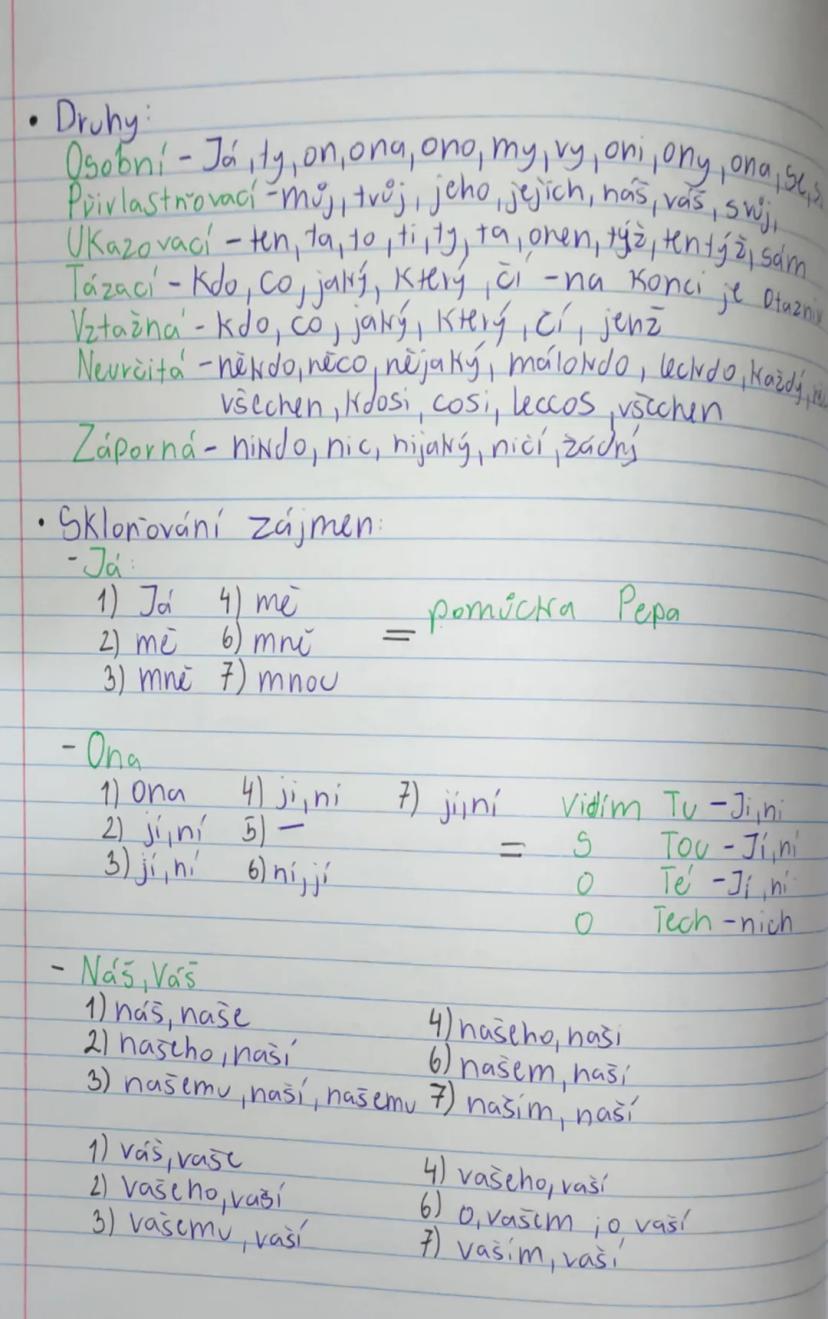 • Druhy:
Osobní - Já, ty, on, ona, ono, my, vy, oni, ony, ona, se,
Přivlastňovací - můj, tvůj, jeho, jejich, náš, váš, svůj,
Ukazovací - ten, ta, to, ti, ty, ta, onen, týž, tentýž, sám
Tázací - Kdo, co, jaký, který, čí - na konci je otazník
Vztažná - kdo, co, jaký, který, čí, jenž
Neurčitá - někdo, něco, nějaký, málokdo, leckdo, každý,
všechen, kdosi, cosi, leccos, všechen
Záporná - nikdo, nic, nijaký, ničí, žádný
• Skloňování zájmen:
- Já:
1) Já 4) mě
2) mě 6) mně = pomůcka Pepa
3) mně 7) mnou
- Ona
1) Ona 4) ji, ni 7) jí, ní Vidím Tu - Ji, ni
2) jí, ní 5) — = S Tou - Jí, ní
3) jí, ní 6) ní, jí O Té - Jí, ní
O Tech - nich
- Náš, Váš
1) náš, naše 4) našeho, naši
2) našeho, naší 6) našem, naší
3) našemu, naší, našemu 7) naším, naší
1) váš, vaše 4) vašeho, vaší
2) vašeho, vaší 6) o, vašem, o vaší
3) vašemu, vaší 7) vaším, vaší